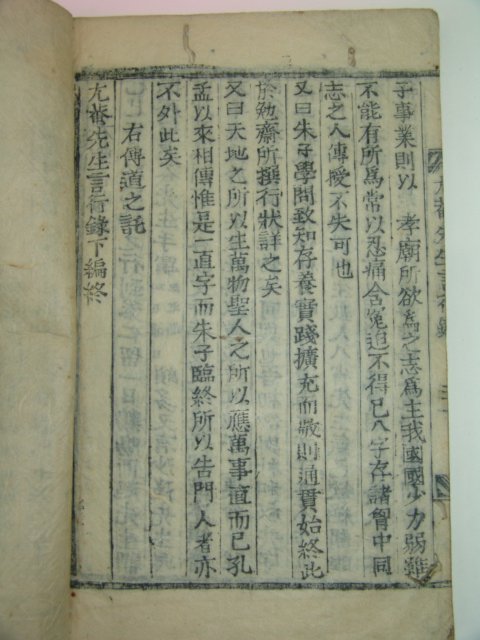 子事業則以 孝廟所欲爲之志爲主我國國小力弱雖
不能有所爲常以忍痛含冤迫不得已八字存諸胷中同
志之人傳授不失可也
又曰朱子學問致知存養實踐擴充而敬則通貫始終此
於勉齋所撰行狀詳之矣
又曰天地之所以生萬物聖人之所以應萬事直而已孔
孟以來相傳惟是一直字而朱子臨終所以告門人者亦
不外此矣
右傳道之託
尤菴先生言行錄下編終